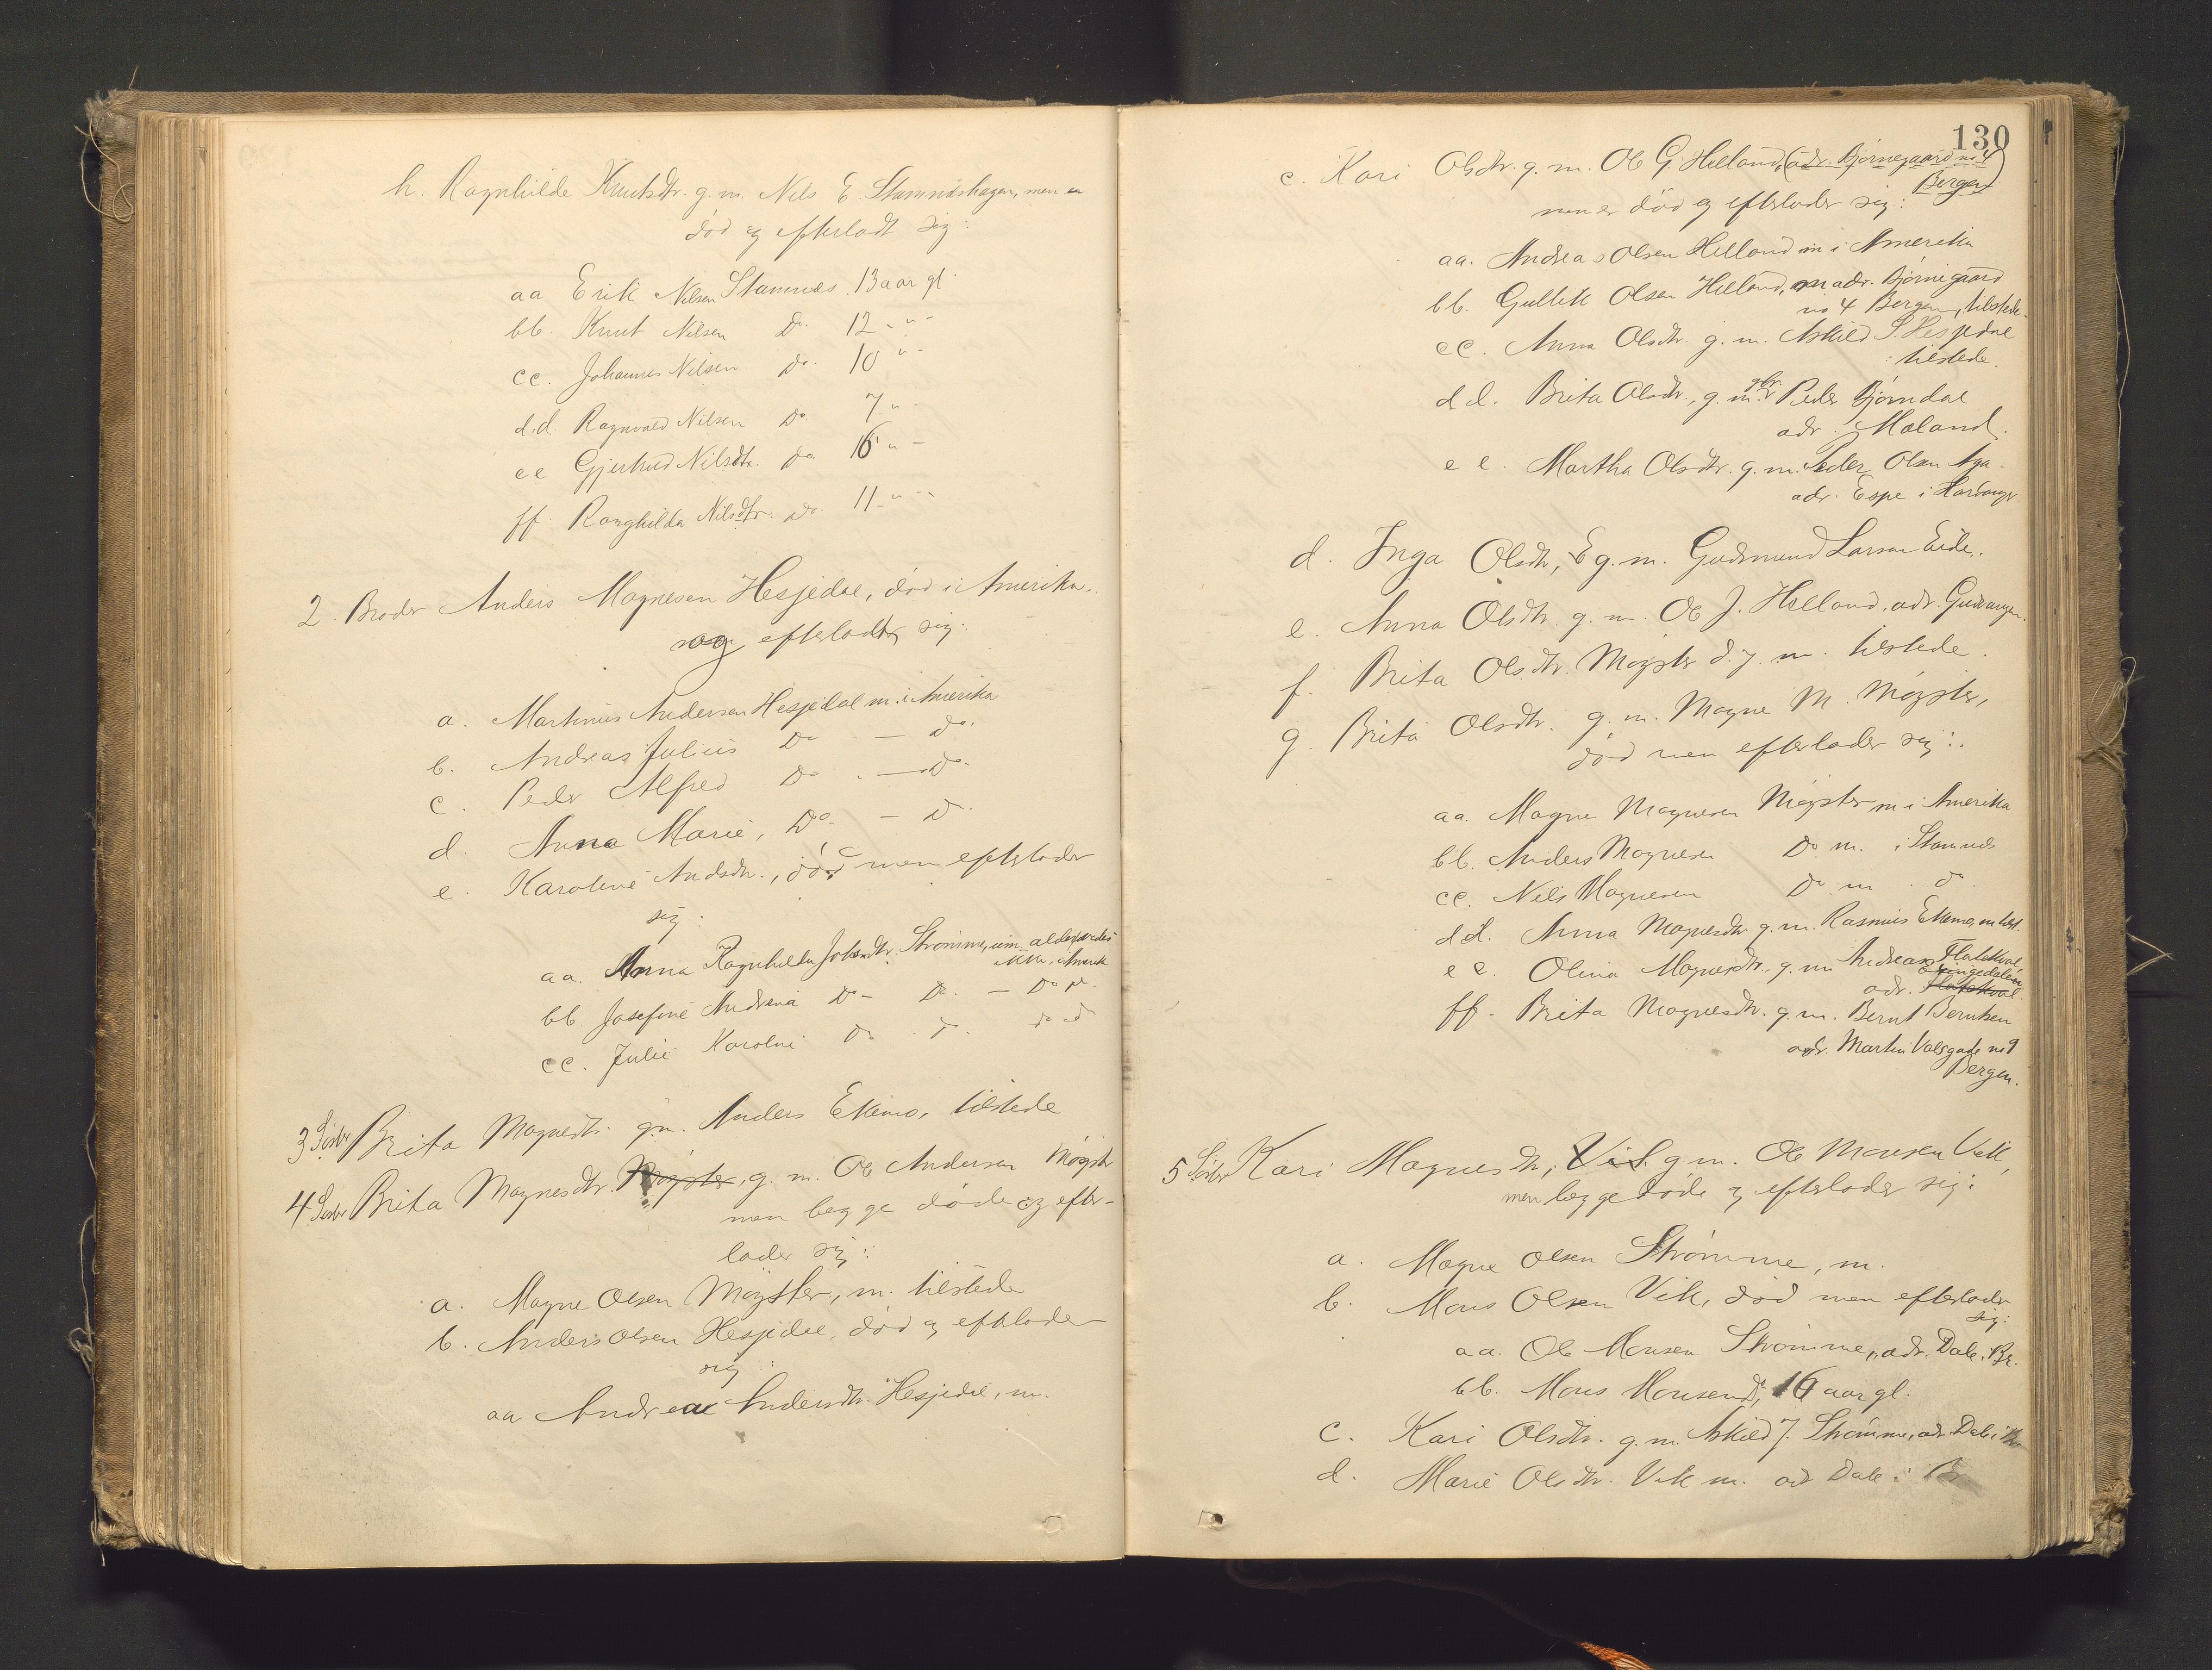 h. Ragnhilde Knutsdtr. g. m. Nils E. Stamneshagen, men er
død og efterladt sig:
aa Erik Nilsen Stamnes 13 aar gl.
bb. Knut Nilsen Do. 12 " -
cc. Johannes Nilsen Do. 10 " -
dd. Ragnvald Nilsen Do 7 " -
ee Gjertrud Nilsdtr. Do 16 " -
ff. Ranghilda Nilsdtr. Do 11 " -
2. Broder Anders Magnesen Hesjedal, død i Amerika.
og efterladt sig:
a. Martinus Andersen Hesjedal m. i Amerika
b. Andreas Julius Do - Do.
c. Peder Alfred Do. - Do.
d. Anna Marie, Do. - D.
e. Karoline Andsdtr., død men efterlader
sig:
aa. Anna Ragnhilda Johsdtr. Strømme, um alder vides
ikke, i Amerik
bb. Josefine Andrena Do - Do. - Do Do.
cc. Julie Karoline Do. D. do do
3 Søster Brita Magnesdtr. g.m. Anders Ekemo, tilstede
4 Søster Brita Magnesdtr. Møgster, g. m. Ole Andersen Møgster
men begge døde og efter-
lader sig:
a. Magne Olsen Møgster, m. tilstede
b. Anders Olsen Hesjedal, død og efterlader
sig:
aa Andrea Andersdtr. Hesjedal, m.
130
c. Kari Olsdtr. g. m. Ole G. Helland, (adr. Bjørnegaard no 4
Bergen)
men er død og efterlader sig:
aa. Andreas Olsen Helland m i Amerika
bb. Gullik Olsen Helland, m adr. Bjørnegaard
no 4 Bergen, tilstede.
cc. Anna Olsdtr. g. m. Askild S. Hesjedal
tilstede.
dd. Brita Olsdtr., g. m. gbr. Peder Bjørndal
adr. Moland.
ee. Martha Olsdtr. g. m. Peder Olsen Aga
adr. Espe i Hardanger.
d. Inga Olsdtr, E g. m. Gudmund Larsen Eide.
e. Anna Olsdtr. g. m. Ole J. Helland, adr. Gudvangen.
f. Brita Olsdtr. Møgster d. y. m. tilstede.
g. Brita Olsdtr. g. m. Magne M. Møgster,
død men efterlader sig:
aa. Magne Magnesen Møgster m i Amerika
bb. Anders Magnesen Do m. i Stamnes
cc. Nils Magnesen Do m. do
dd. Anna Magnesdtr. g. m. Rasmus Ekemo, m tilst.
ee. Olina Magnesdtr. g. m Andreas Flatekval,
Eksingedalen
adr. Flatekval.
ff. Brita Magnesdtr. g. m. Bernt Berntsen
adr. Martin Valsgade no 9
Bergen.
5 Søster Kari Magnesdtr, Vik g m. Ole Monsen Vik,
men begge døde og efterlader sig:
a. Magne Olsen Strømme, m.
b. Mons Olsen Vik, død men efterlader
sig:
aa. Ole Monsen Strømme, adr. Dale i Br.
bb. Mons Monsen Do, 16 aar gl.
c. Kari Olsdtr. g. m. Askild J. Strømme, adr. Dale i Br
d. Marie Olsdtr. Vik m. adr Dale i Br